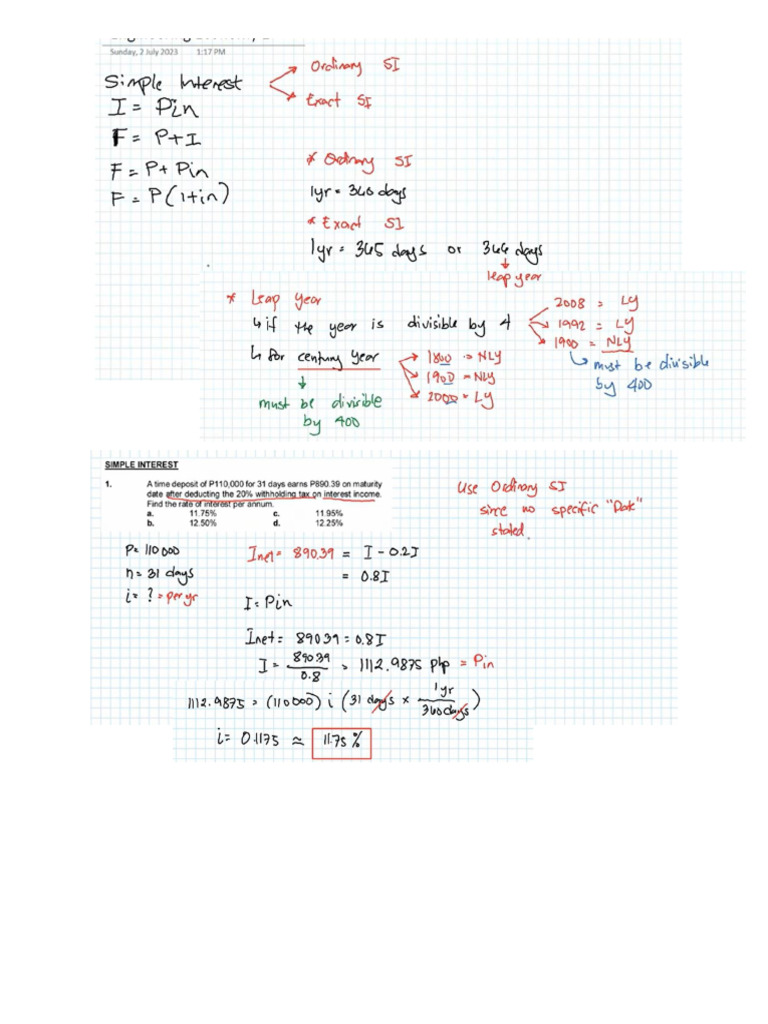 Sunday, 2 July 2023 1:17 PM
Simple Interest
Ordinary SI
Exact SI
I = Pin
F = P+I
F = P + Pin
F = P(1+in)
* Ordinary SI
1yr = 360 days
* Exact SI
1yr = 365 days or 366 days
leap year
* Leap year
↳ if the year is divisible by 4
2008 = LY
1992 = LY
1900 = NLY
must be divisible
by 400
↳ for century year
1800 = NLY
1900 = NLY
2000 = LY
must be divisible
by 400
SIMPLE INTEREST
1. A time deposit of P110,000 for 31 days earns P890.39 on maturity
date after deducting the 20% withholding tax on interest income.
Find the rate of interest per annum.
a. 11.75% c. 11.95%
b. 12.50% d. 12.25%
Use Ordinary SI
since no specific "Date"
stated.
P= 110 000
n= 31 days
i= ? = per yr
Inet= 890.39 = I - 0.2I
= 0.8I
I= Pin
Inet= 890.39 = 0.8I
I = 890.39 / 0.8 = 1112.9875 php = Pin
1112.9875 = (110 000) i (31 days × 1yr / 360 days)
i= 0.1175 ≈ 11.75 %